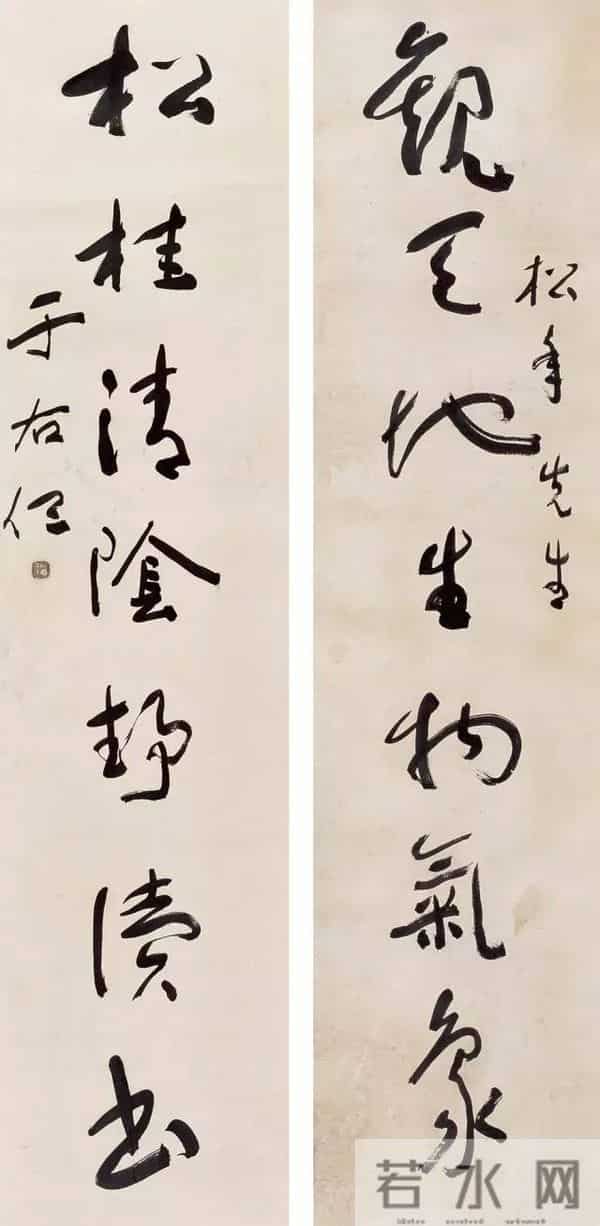 觀天地生物氣象
松年先生
松桂清陰靜讀書
于右任
若水网